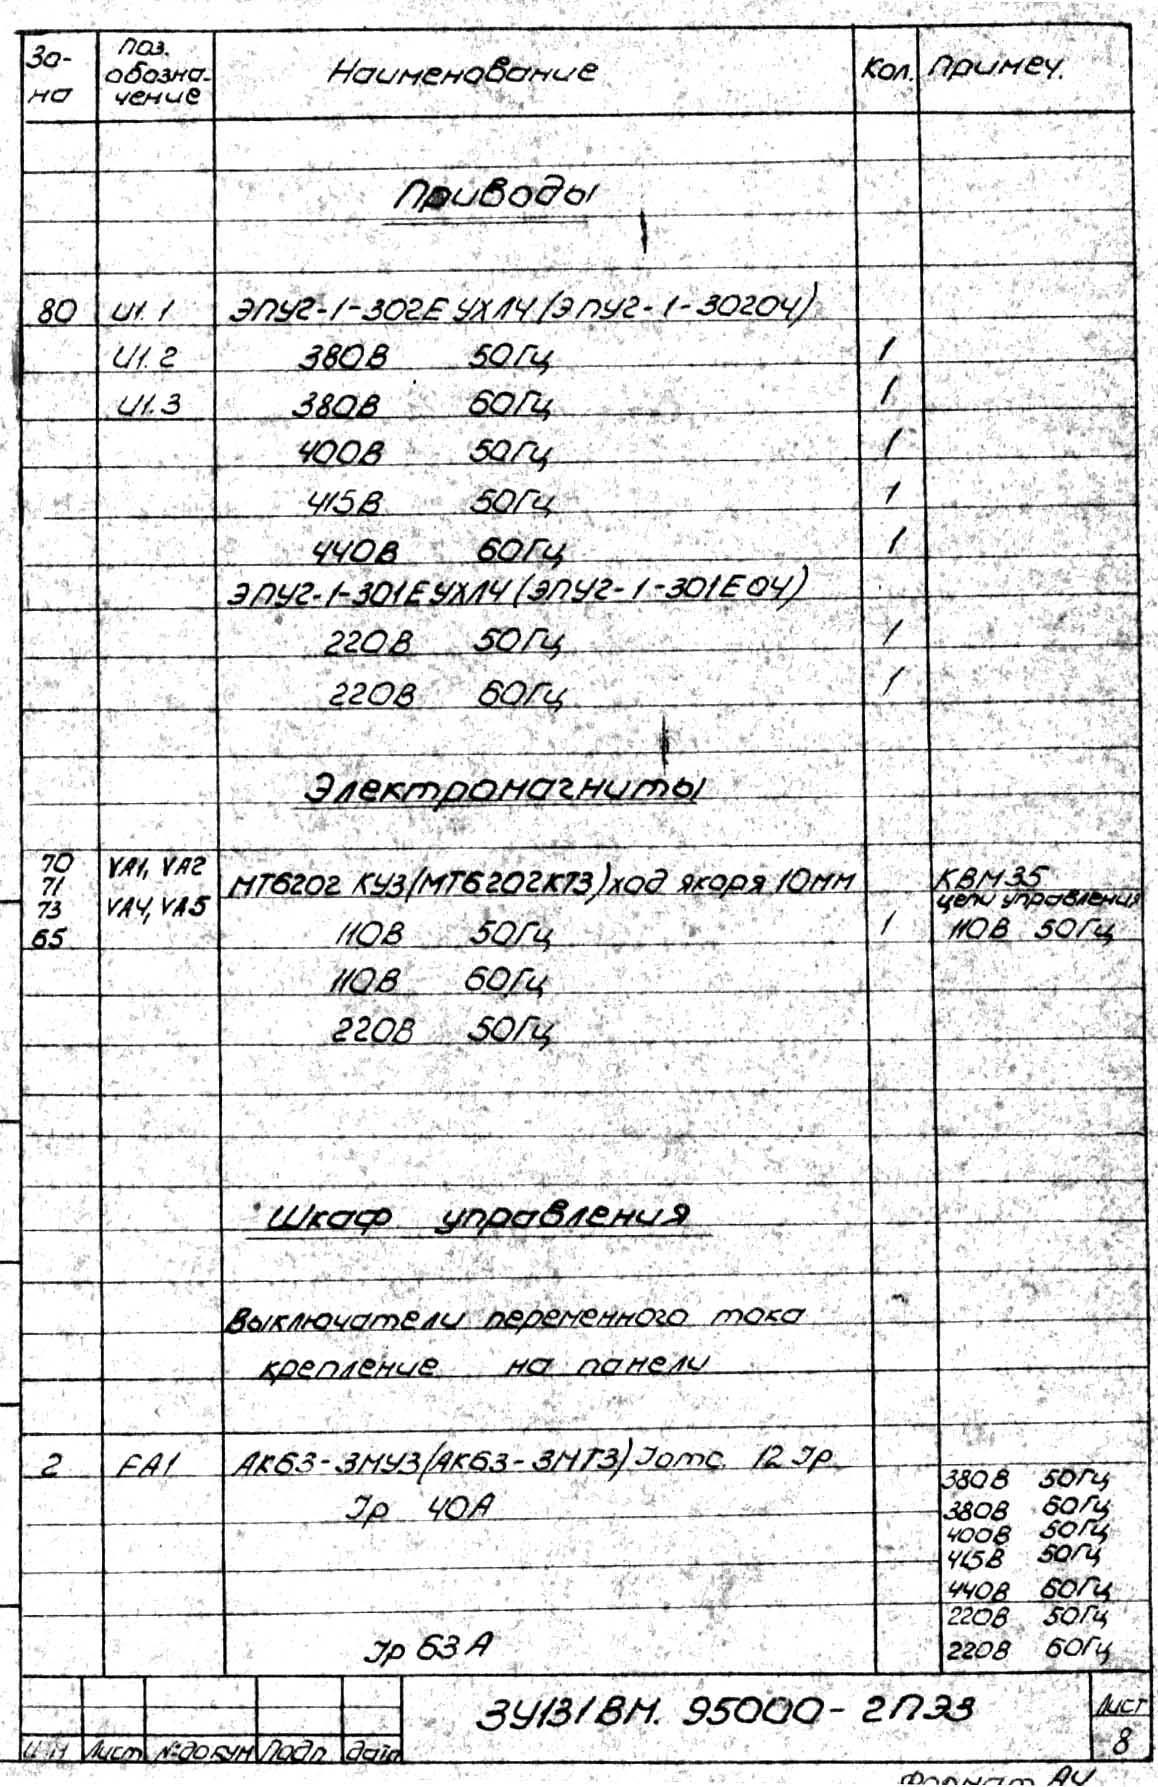 Зо-
на
поз.
обозна-
чение
Наименование
Кол.
Примеч.
Приводы
80 U1.1 ЭПУ2-1-302Е УХЛ4 (ЭПУ2-1-30204)
U1.2 380В 50Гц 1
U1.3 380В 60Гц 1
400В 50Гц 1
415В 50Гц 1
440В 60Гц 1
ЭПУ2-1-301Е УХЛ4 (ЭПУ2-1-301Е04)
220В 50Гц 1
220В 60Гц 1
Электромагниты
70 VA1, VA2
71 МТ6202 КУ3 (МТ6202КТ3) ход якоря 10мм КВМ35
73 VA4, VA5 цепи управления
65 110В 50Гц 1 110В 50Гц
110В 60Гц
220В 50Гц
Шкаф управления
Выключатели переменного тока
крепление на панели
2 FA1 АК63-3МУ3 (АК63-3МТ3) Iотс. 12 Iр
380В 50Гц
Iр 40А 380В 60Гц
400В 50Гц
415В 50Гц
440В 60Гц
220В 50Гц
Iр 63А 220В 60Гц
3У131ВМ. 95000-2ПЭ3
Лист
8
И М Лист №докум Подп Дата
Формат А4